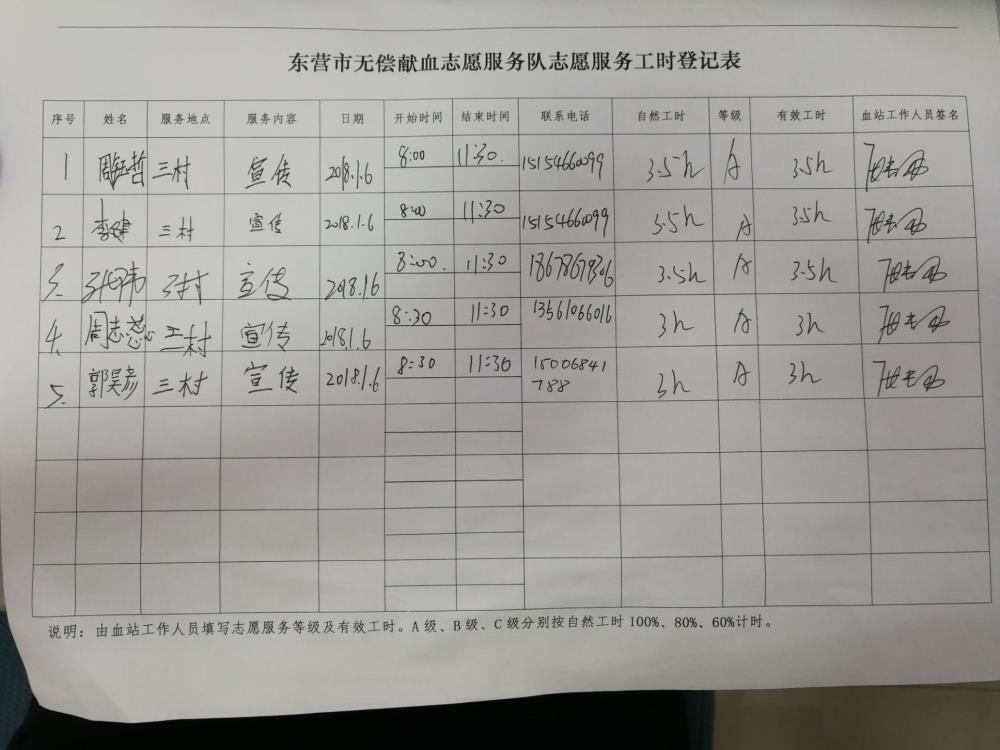 东营市无偿献血志愿服务队志愿服务工时登记表
序号 姓名 服务地点 服务内容 日期 开始时间 结束时间 联系电话 自然工时 等级 有效工时 血站工作人员签名
1 周钰哲 三村 宣传 2018.1.6 8:00 11:30. 15154660099 3.5h A 3.5h
2 李健 三村 宣传 2018.1.6 8:00 11:30 15154660099 3.5h A 3.5h
3. 三村 宣传 2018.1.6 8:00. 11:30 18678679306 3.5h A 3.5h
4. 周志慈 三村 宣传 2018.1.6 8:30 11:30 13561066016 3h A 3h
5. 郭昊彦 三村 宣传 2018.1.6 8:30 11:30 15006841
788 3h A 3h
说明：由血站工作人员填写志愿服务等级及有效工时。A 级、B 级、C 级分别按自然工时 100%、80%、60%计时。